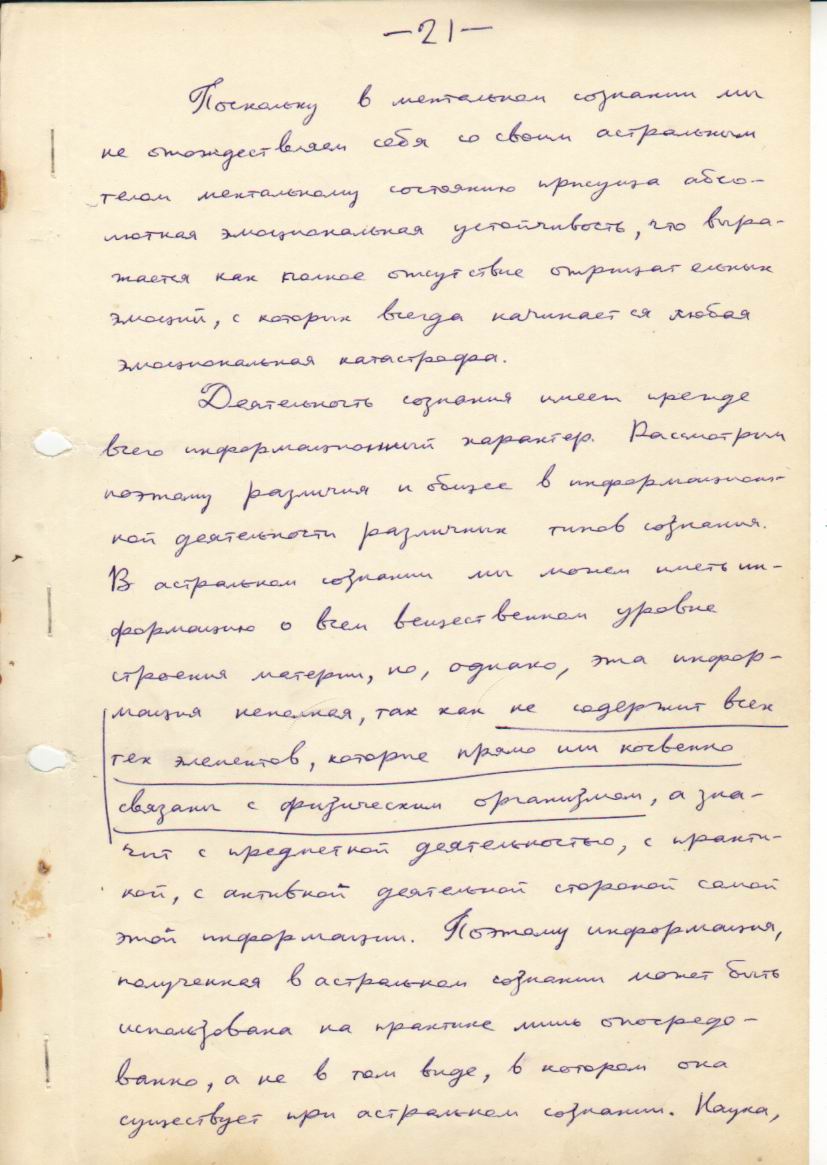 —21—
Поскольку в ментальном сознании мы
не отождествляем себя со своим астральным
телом ментальному состоянию присуща абсо-
лютная эмоциональная устойчивость, что выра-
жается как полное отсутствие отрицательных
эмоций, с которых всегда начинается любая
эмоциональная катастрофа.
Деятельность сознания имеет прежде
всего информационный характер. Рассмотрим
поэтому различия и общее в информацион-
ной деятельности различных типов сознания.
В астральном сознании мы можем иметь ин-
формацию о всем вещественном уровне
строения материи, но, однако, эта инфор-
мация неполная, так как не содержит всех
тех элементов, которые прямо или косвенно
связаны с физическим организмом, а зна-
чит с предметной деятельностью, с практи-
кой, с активной деятельной стороной самой
этой информации. Поэтому информация,
полученная в астральном сознании может быть
использована на практике лишь опосредо-
ванно, а не в том виде, в котором она
существует при астральном сознании. Наука,